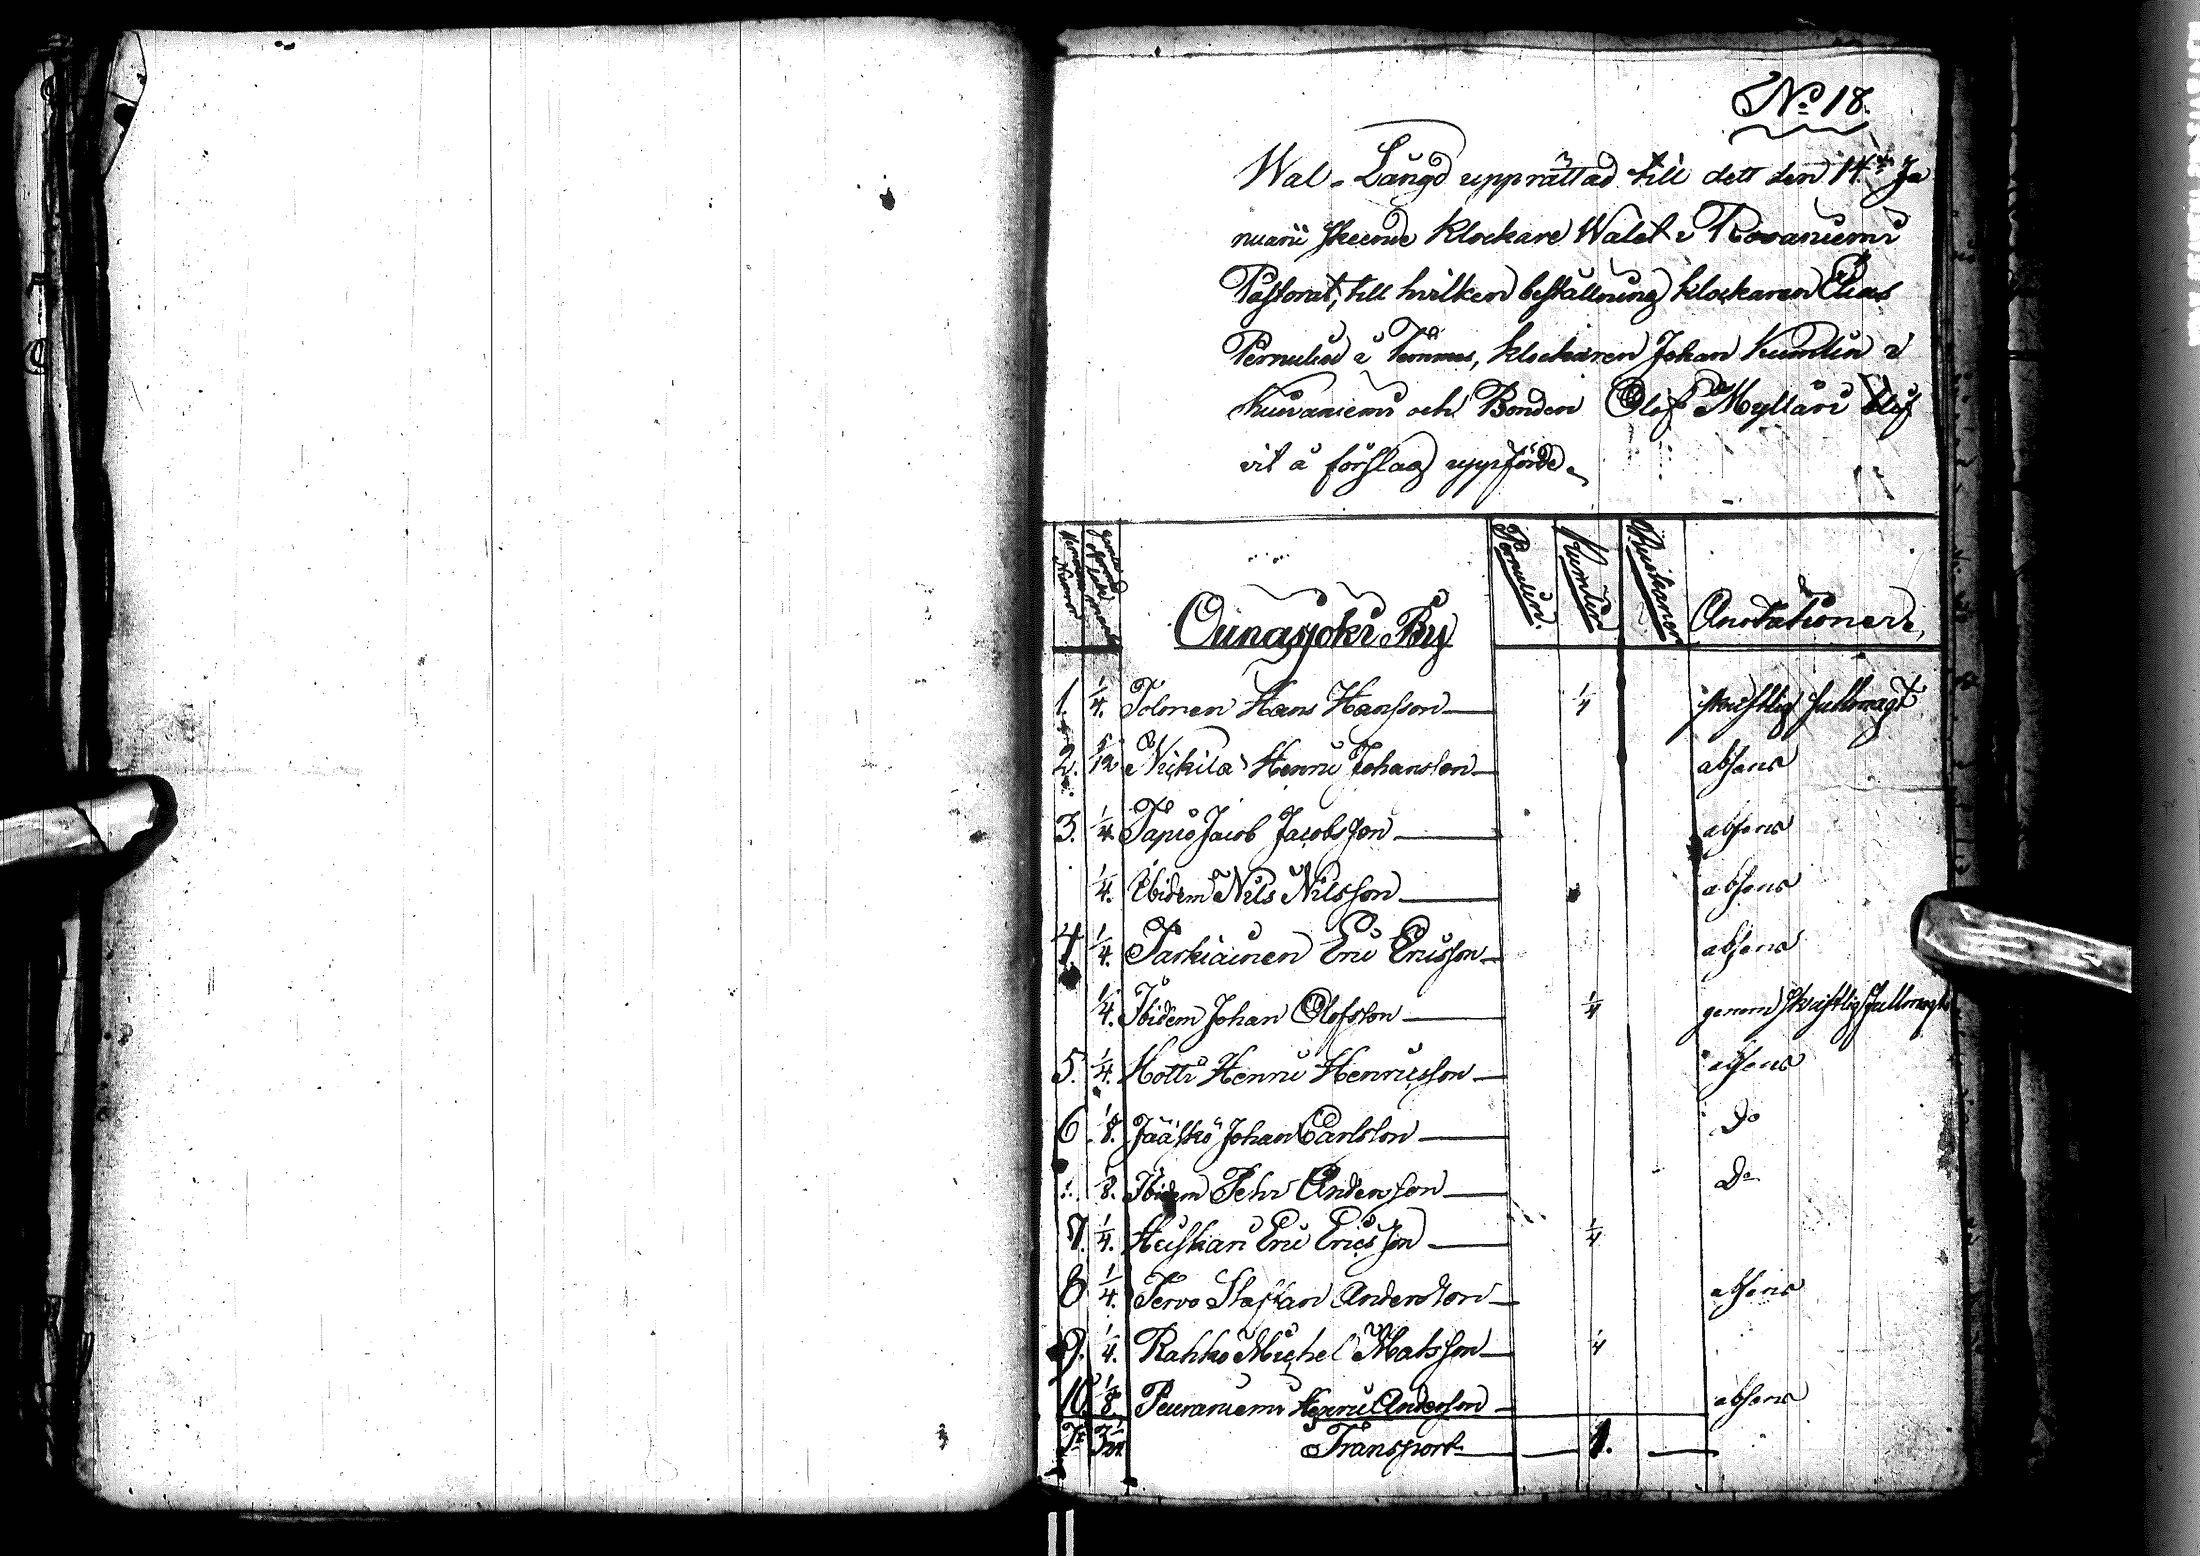 No 18.
Wal-Längd upprättad till dett den 14de Ja
nuarii skeende Klockare Walet i Rovaniemi
Pastorat, till hvilken beställning Klockaren Elias
Pernulin i Temmes, Klockaren Johan Kumlin i
Kuivaniemi och Bonden Olof Myllari blif
vit å förslag uppförde.
Hemmans Numror
Pernulin.
Kumlin
Anotationer
Ounasjoki By
1. 1/4. Tolonen Hans Hansson — 1/4 skriftlig fullmagt
2. 1/12 Nickila Henric Johansson — absens
3. 1/4. Tapio Jacob Jacobsson — absens
1/4. Ibidem Nils Nilsson — absens
4. 1/4. Tarkiainen Eric Ericsson — absens
1/4. Ibidem Johan Olofsson — 1/4 genom skriftlig fullmagt
5. 1/4. Kotti Henric Henricsson — absens
6 1/8. Jääskö Johan Carlsson — Do
1/8. Ibidem Pehr Andersson — Do
7. 1/4. Heiskari Eric Ericsson — 1/4
8 1/4. Tervo Staffan Andersson — absens
9. 1/4. Rahko Michel Matsson — 1/4
10. 1/8 Peuraniemi Henric Andersson — absens
Transport — 1. —